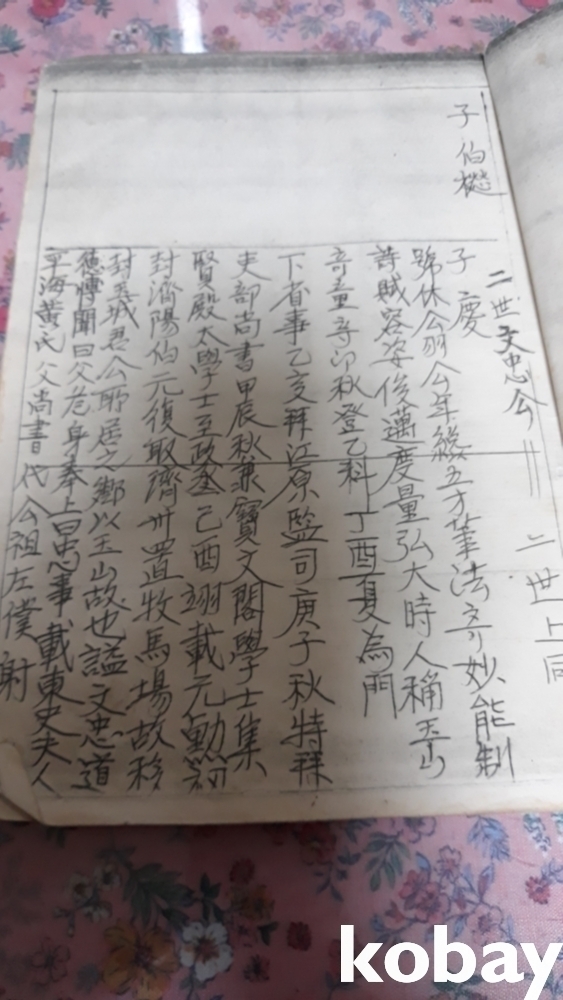 二世上同
二世文忠公
子 伯
子 慶
號休公羽公年纔五才筆法奇妙能制
詩賦容姿俊邁度量弘大時人稱玉山
奇童辛卯秋登乙科丁酉夏為門
下省事乙亥拜江原監司庚子秋特拜
吏部尚書甲辰秋兼寶文閣學士集
賢殿太學士至政堂己酉翊載元勳詞
封濟陽伯元復取濟州置牧馬場故移
封玉城君公所居之鄉以玉山故也諡文忠道
德博聞曰文危身奉上曰忠事載東史夫人
平海黃氏父尚書代公祖左僕射
kobay